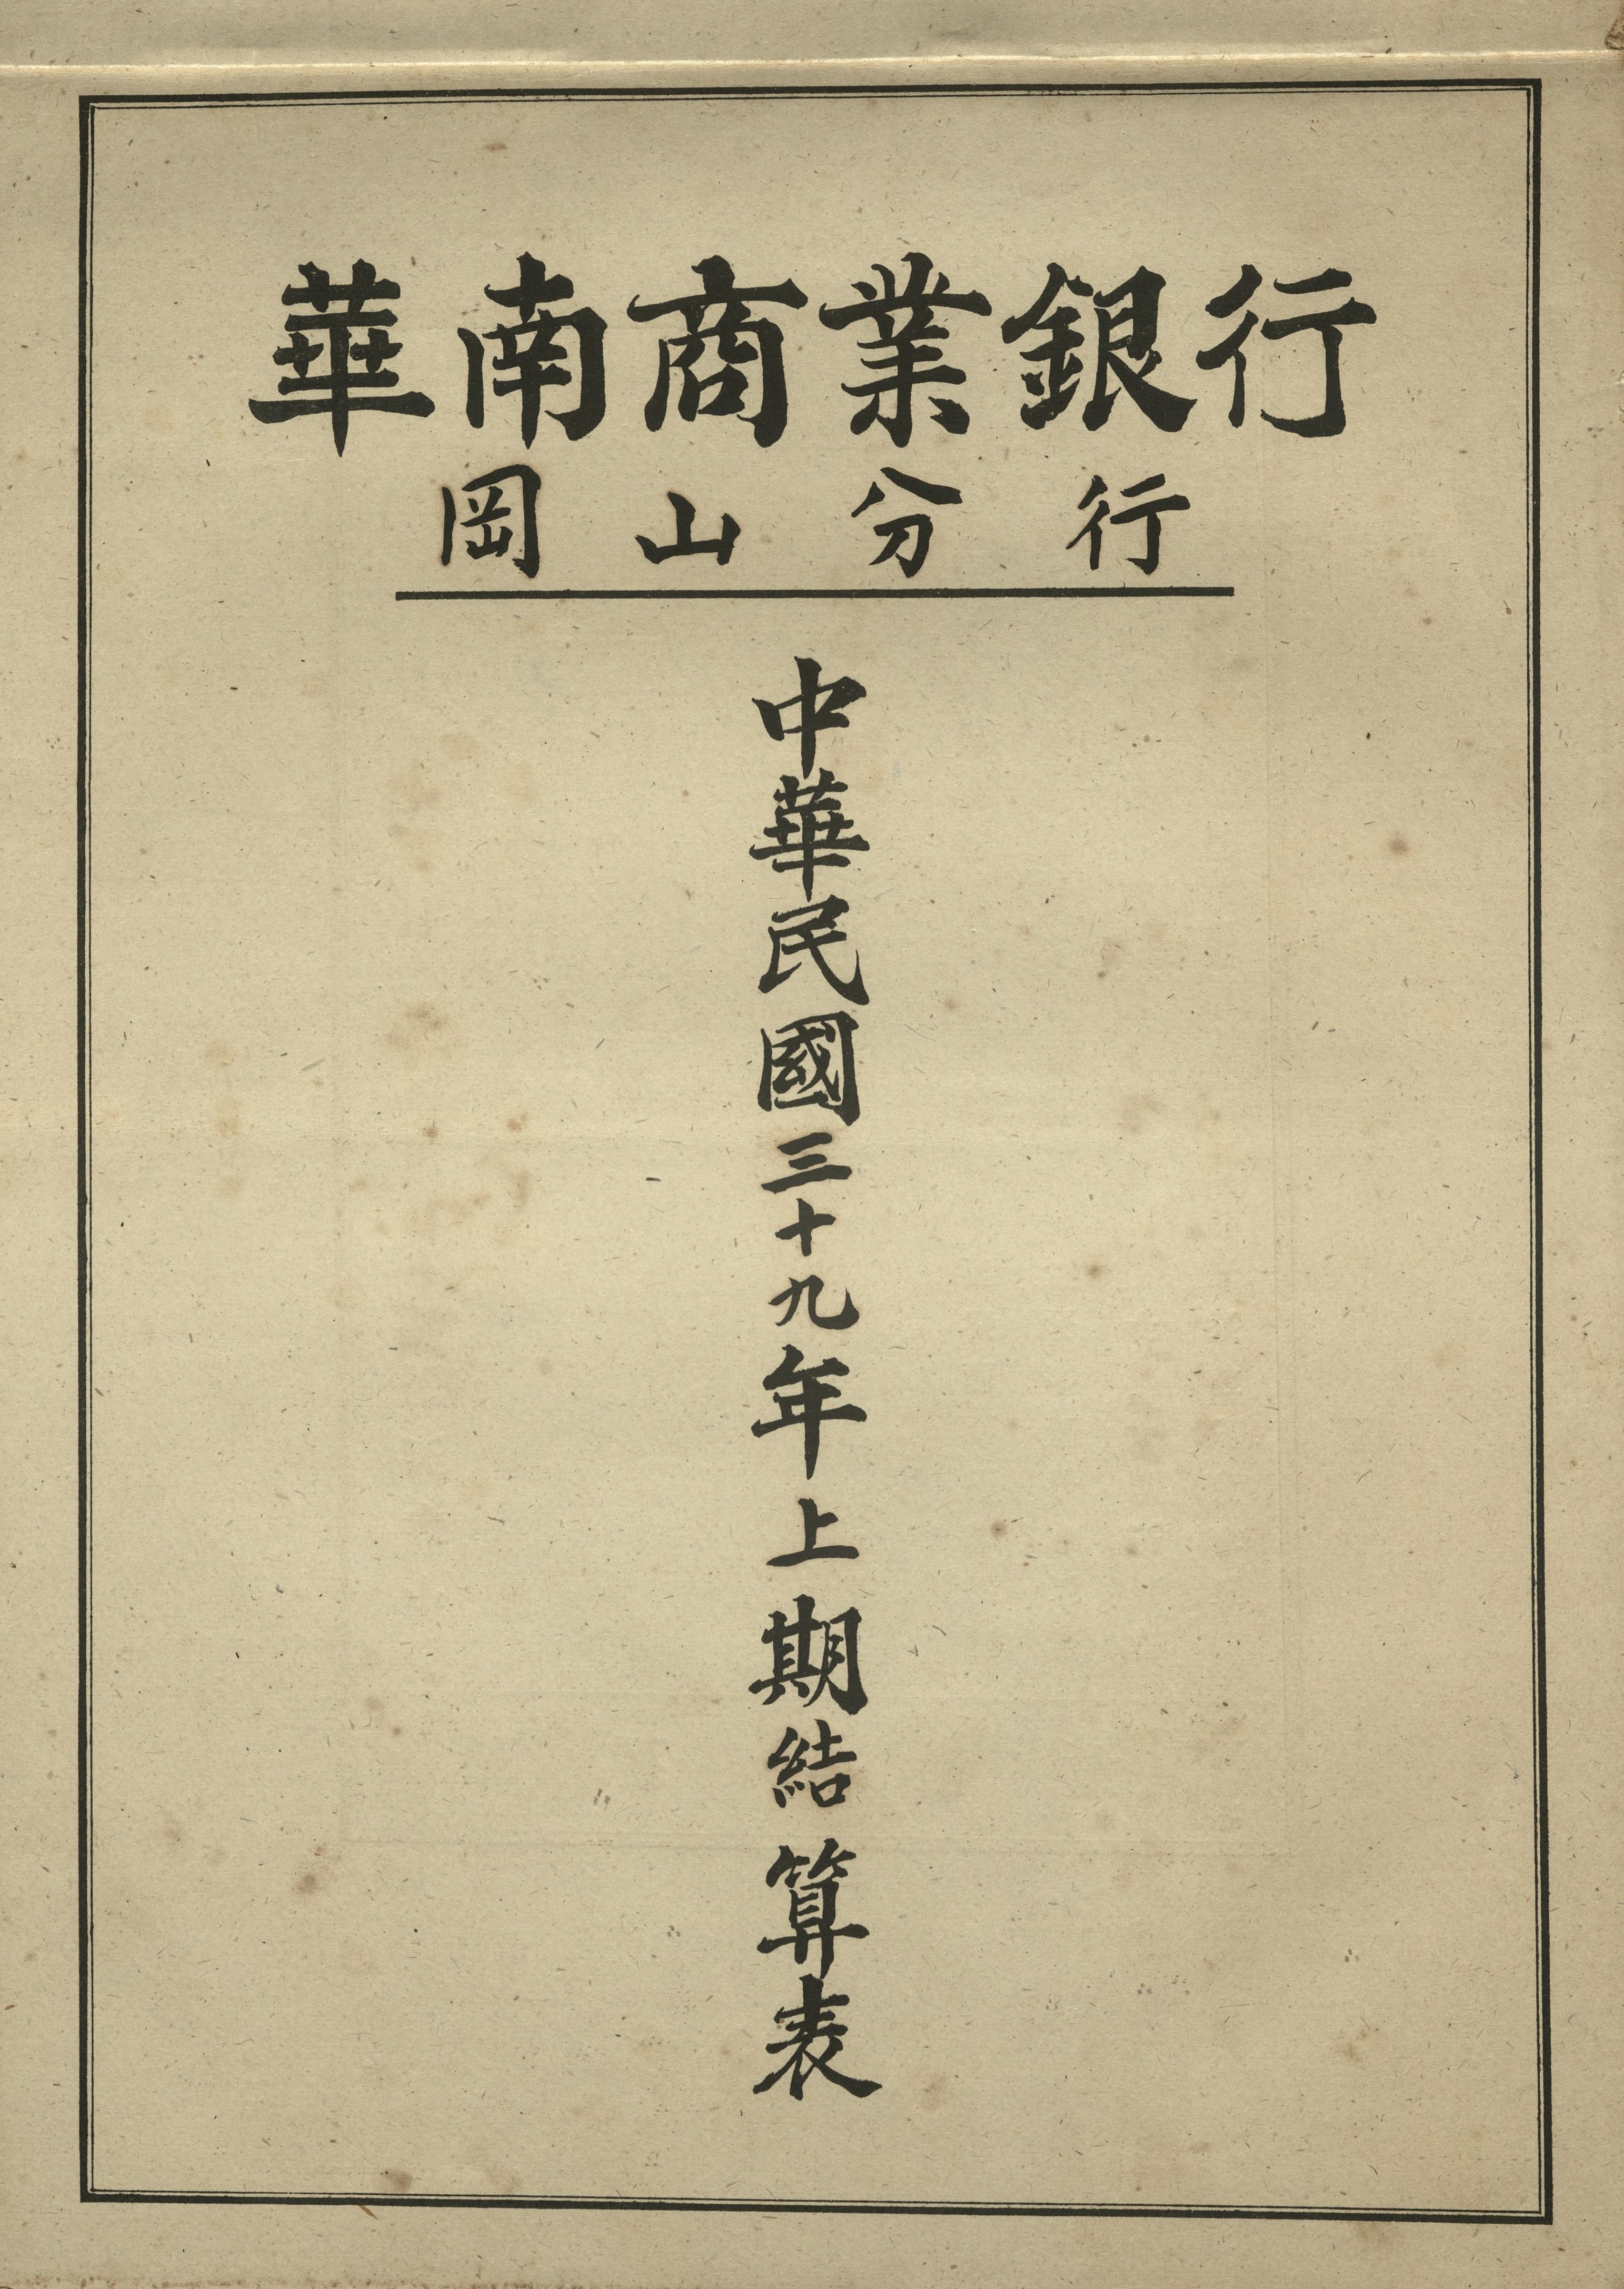 華南商業銀行
岡山分行
中華民國三十九年上期結算表